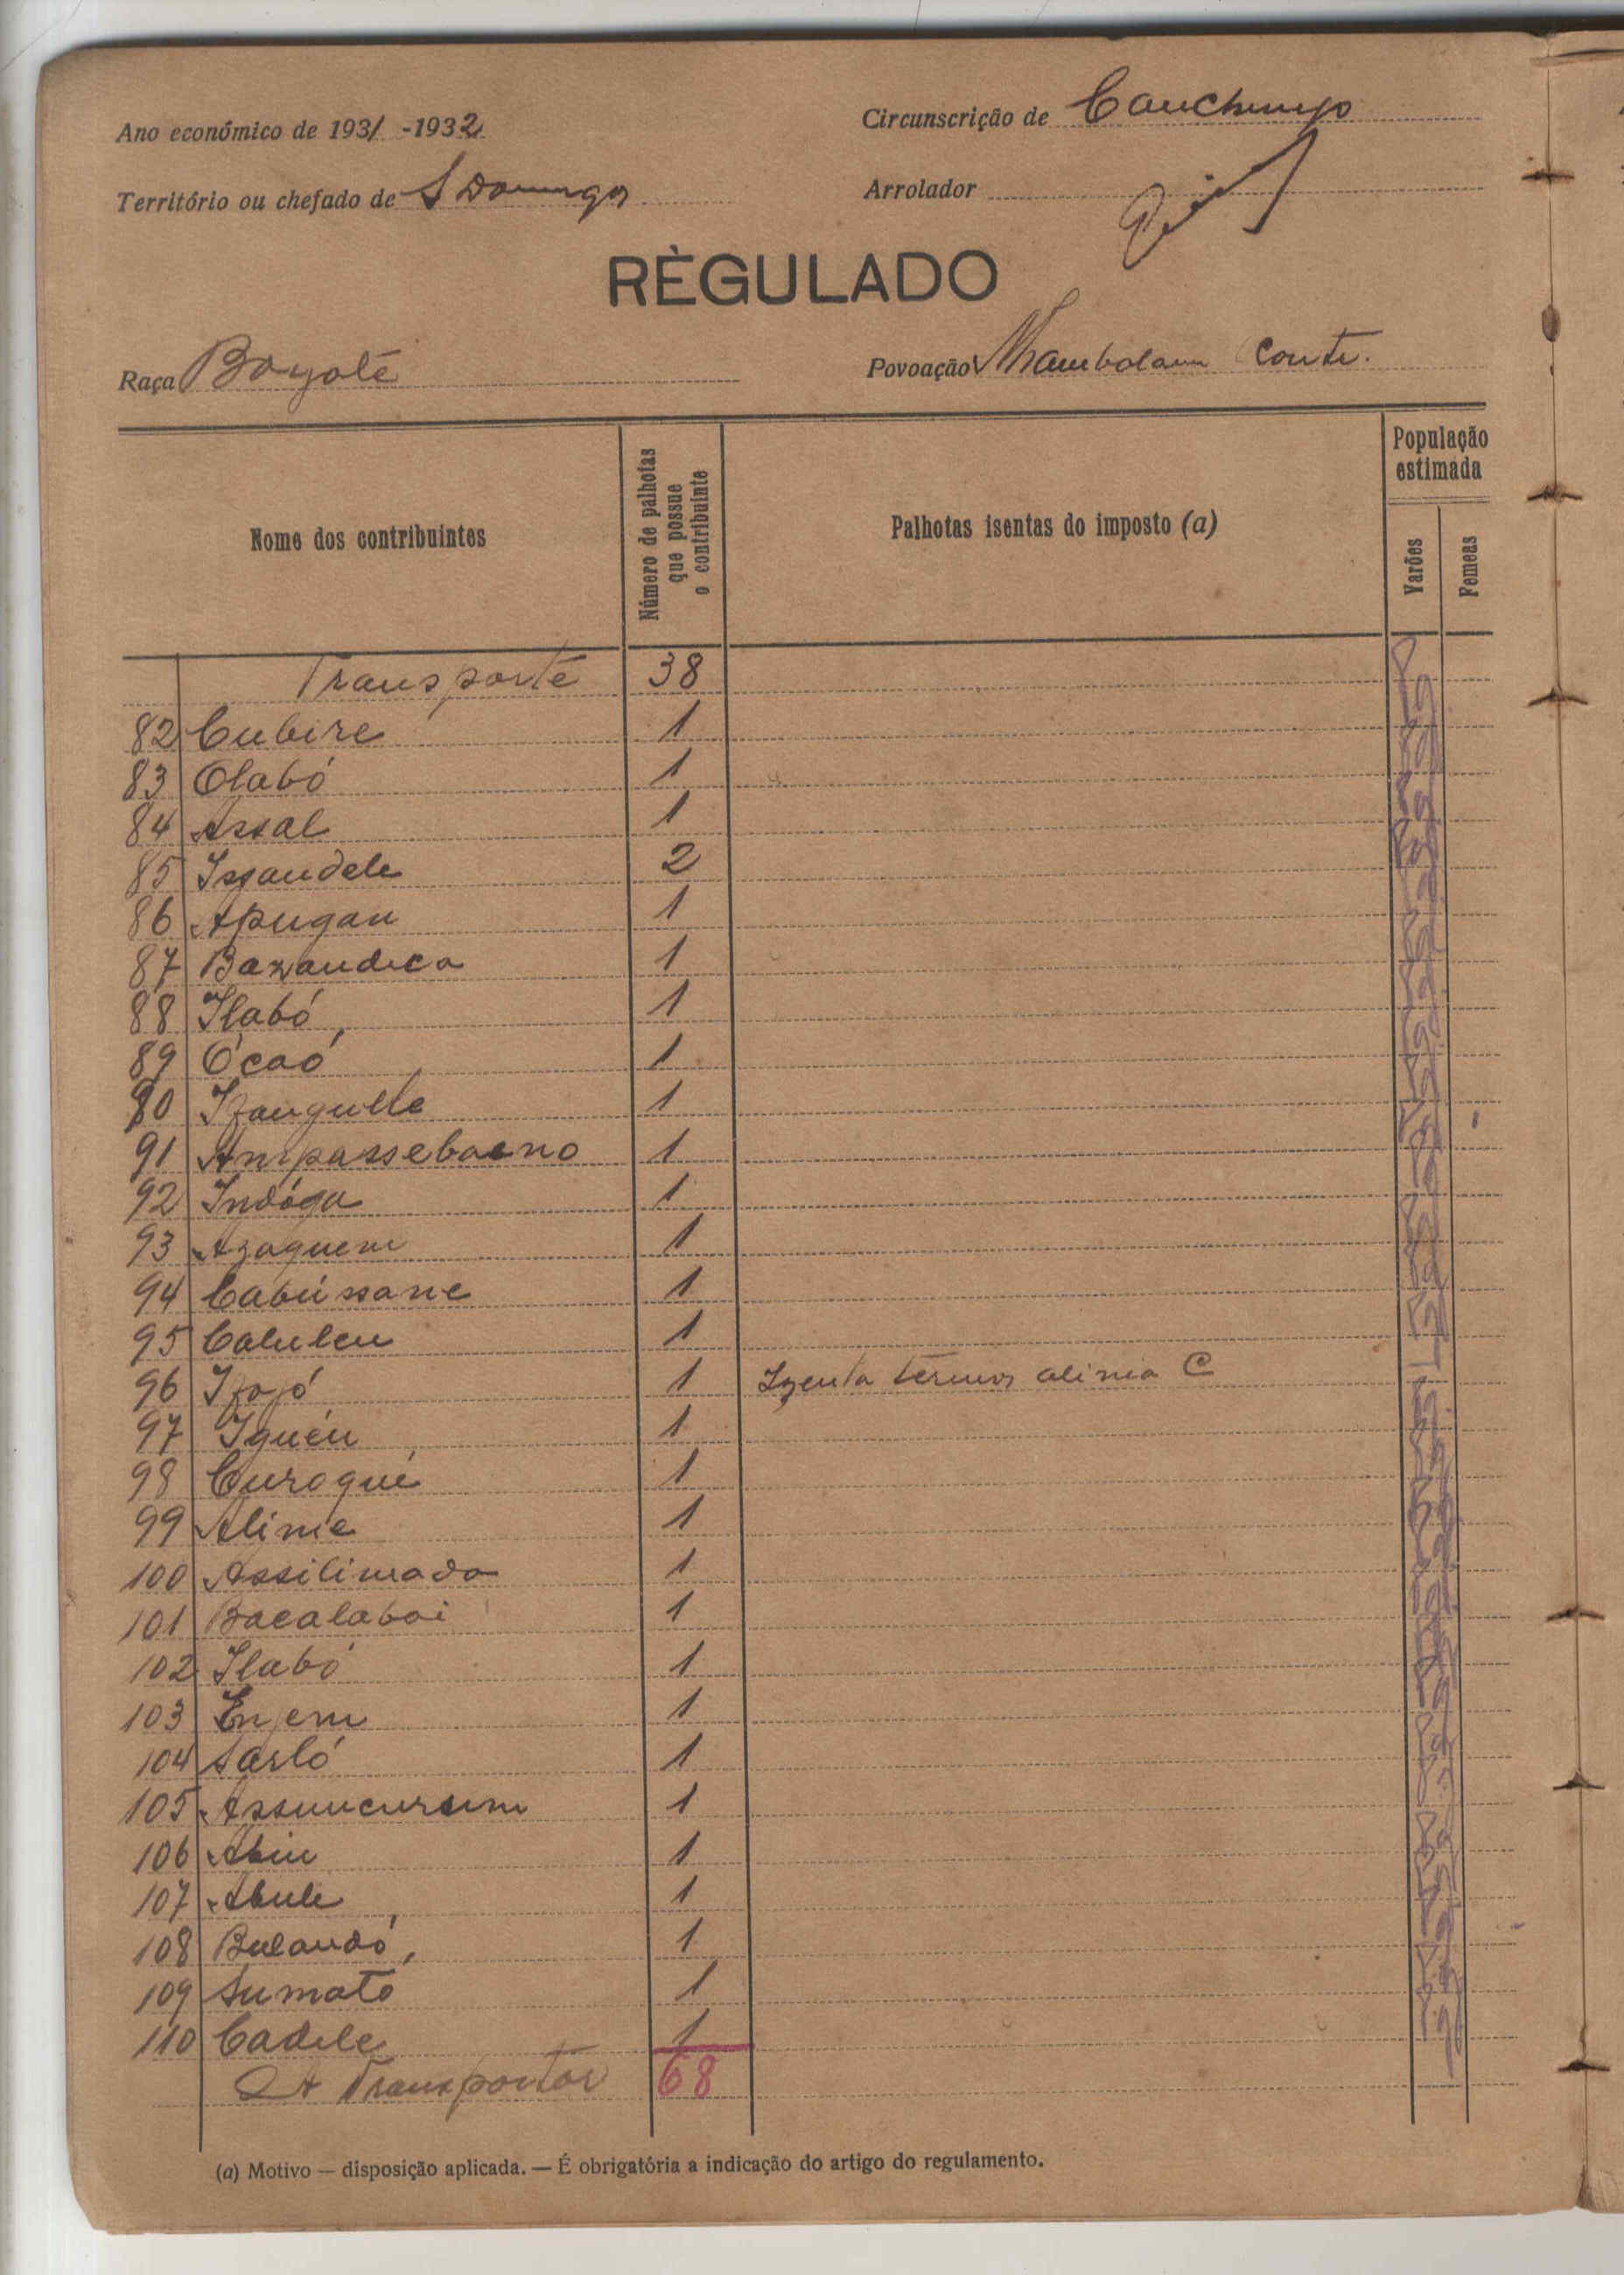 Ano económico de 1931 -1932
Circunscrição de Canchungo
Território ou chefado de S Domingos
Arrolador
RÈGULADO
Raça Bayoté
Povoação Conte.
Nome dos contribuintes
Número de palhotas que possue o contribuinte
Palhotas isentas do imposto (a)
População estimada
Varões
Femeas
Transporte 38
82 Cubire 1
83 Olabó 1
84 Assal 1
85 Issandele 2
86 Apugan 1
87 Bazandeca 1
88 Ilabó 1
89 Ócaó 1
90 1
91 Ampassebaeno 1
92 Indóga 1
93 Azaquem 1
94 Cabússane 1
95 Caluleu 1
96 1 Izenta termos alinia C
97 Iguéu 1
98 Curoqué 1
99 Alinie 1
100 Assilimado 1
101 Bacalaboi 1
102 Ilabó 1
103 Enjem 1
104 Sarló 1
105 1
106 1
107 Abule 1
108 Bulandó 1
109 Sumató 1
110 Cadele 1
A Transportar 68
(a) Motivo — disposição aplicada. — É obrigatória a indicação do artigo do regulamento.